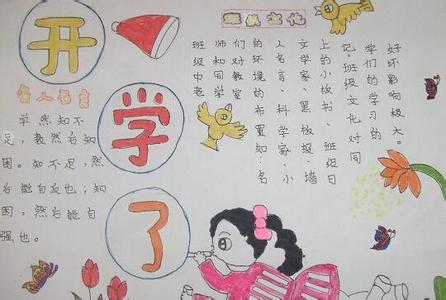 开
学
了
名人名言
学然知不
足，教然后知
困。知不足，然
后能自反也；知
困，然后能自
强也。
班级文化
班级中老
师和同学
们对教室
的环境的布置如：名
人名言、科学家、小
文学家、黑板报、墙
上的小板书、班级日
记.班级文化对同
学们的学习的
好坏影响极大。